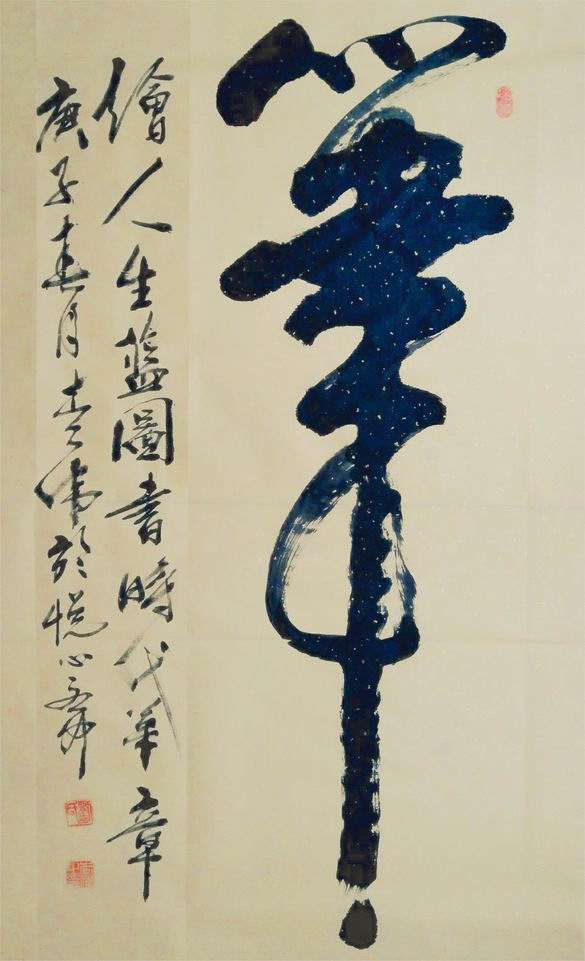 筆
繪人生藍圖書時代華章
庚子春月
於悅心齋